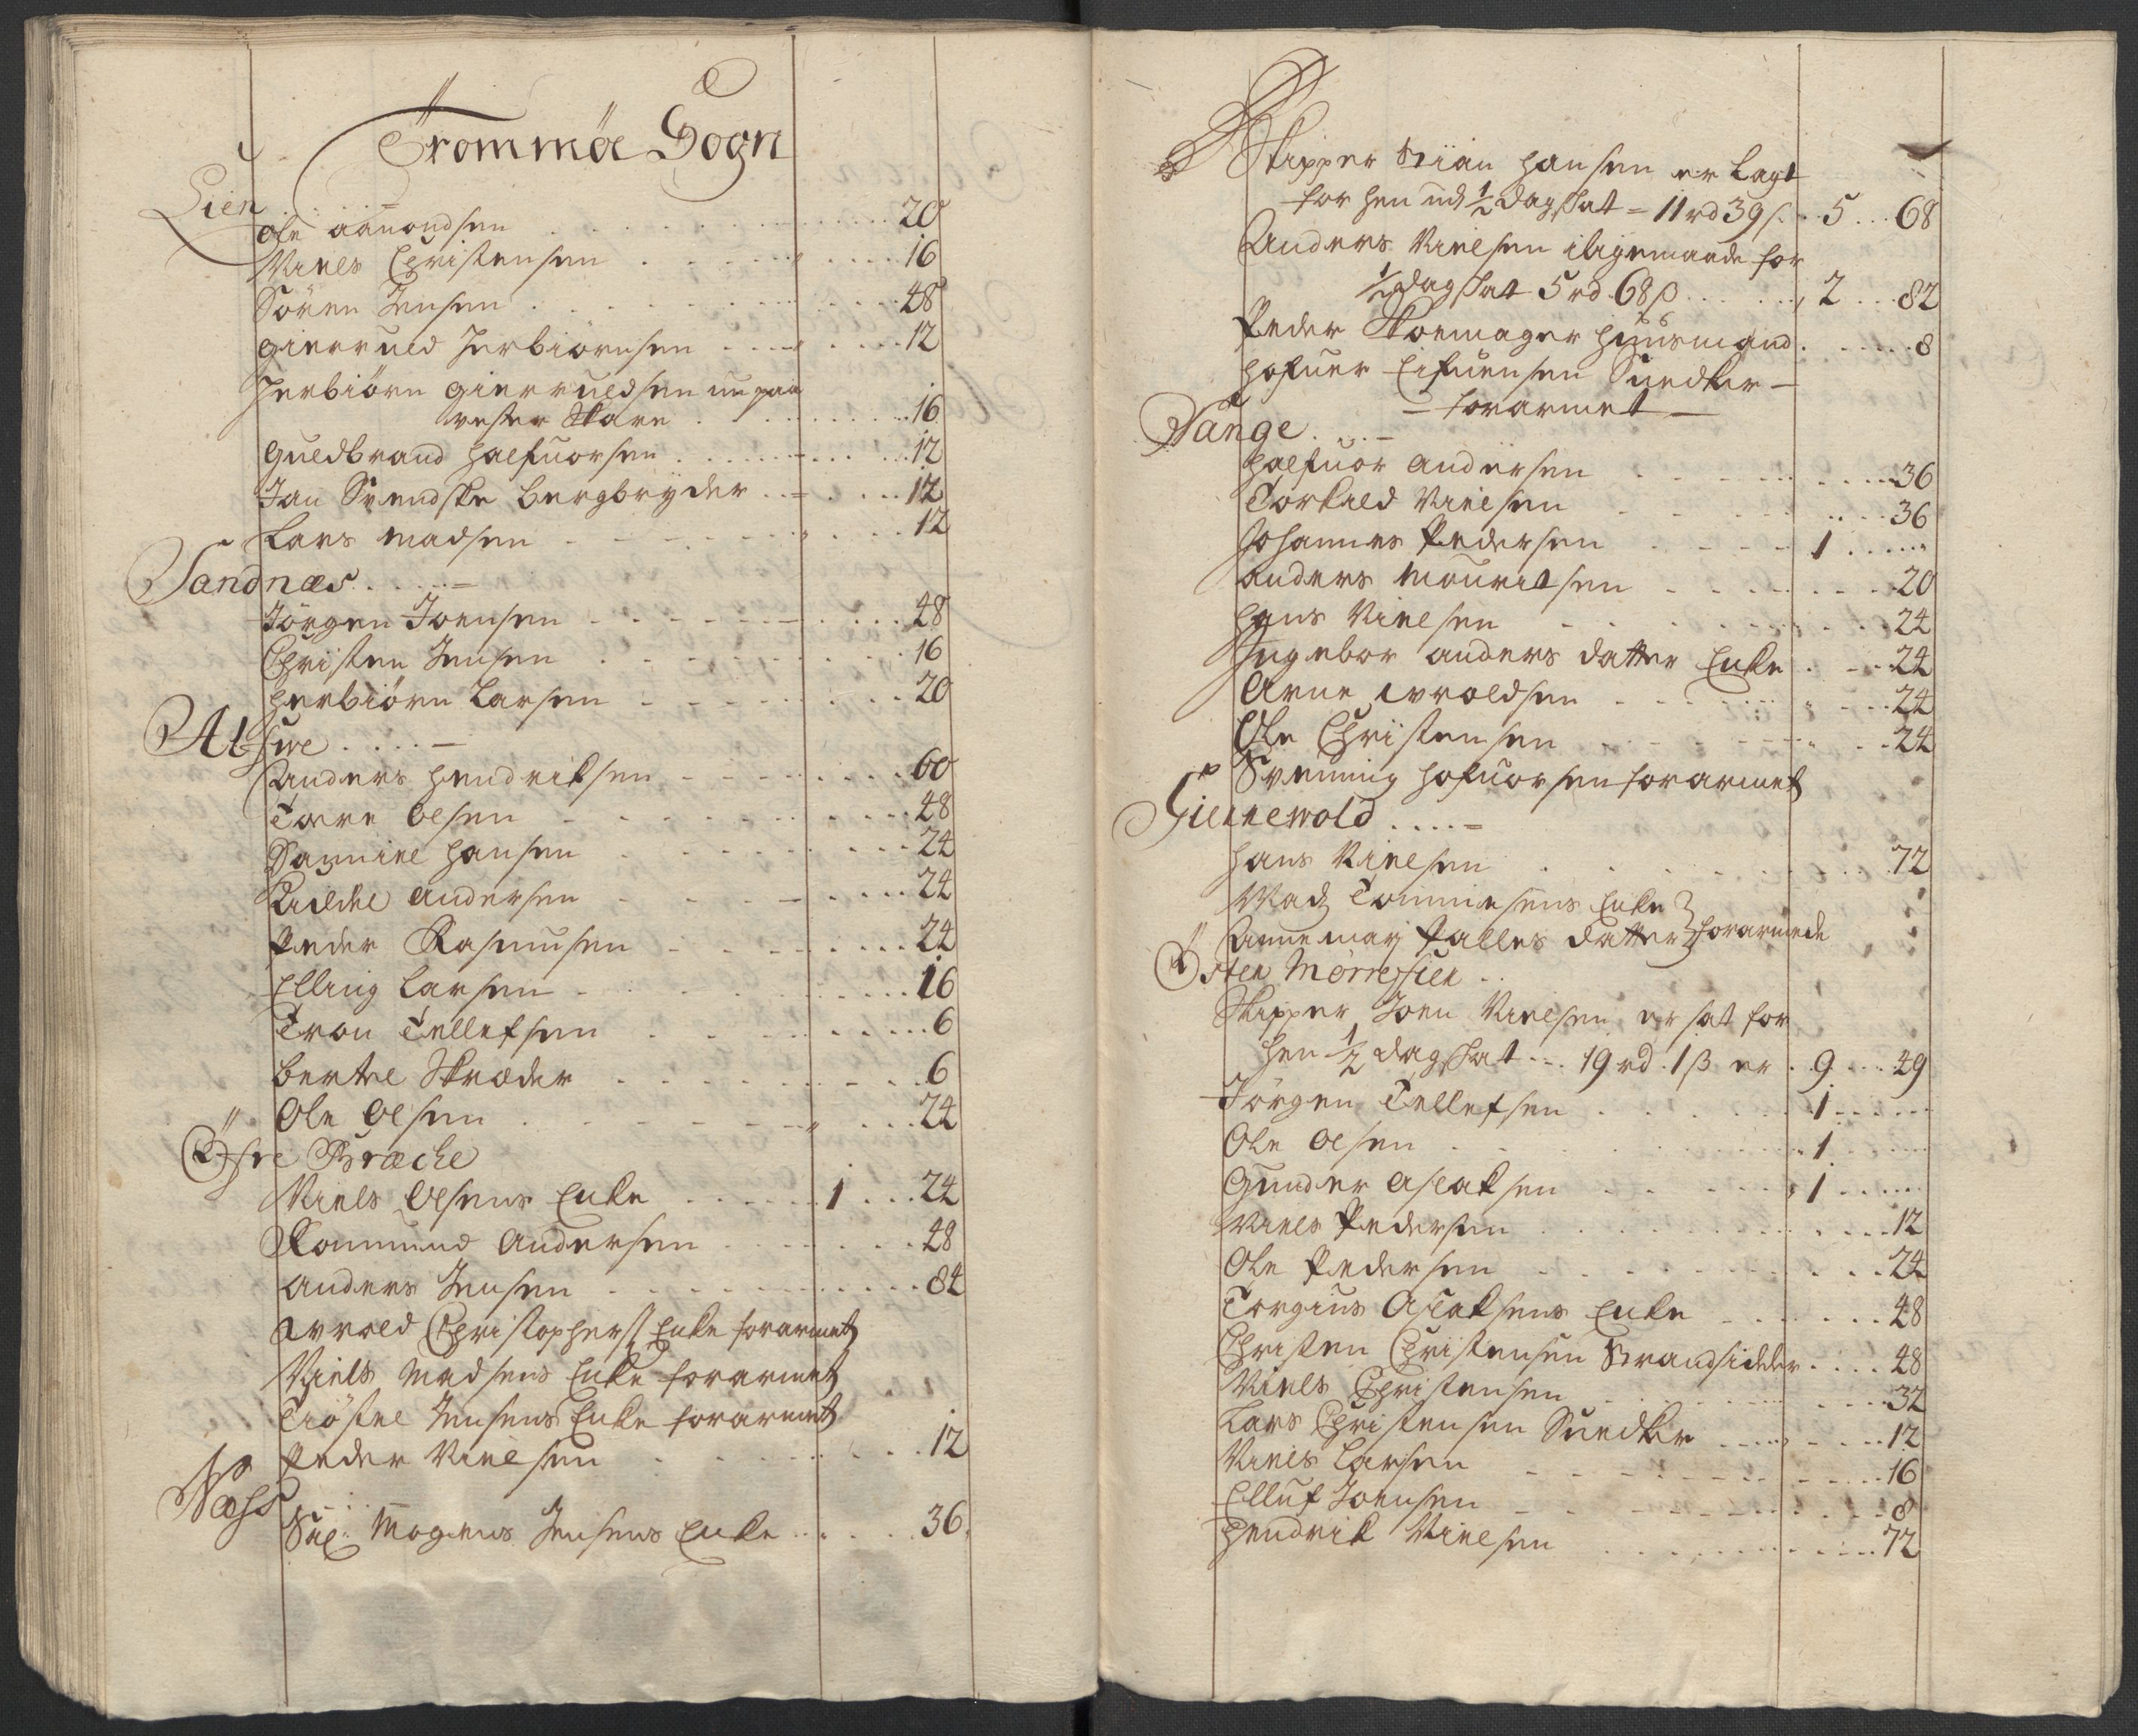 Trommöe Sogn
Lien
Ole Aamondsen 20
Niels Christensen 16
Sören Jensen 48
Gieruuld Herbiörnsen 12
Herbiörn Gieruuldsen nu paa
vester Skare 16
Guldbrand Halfuorsen 12
Jan Svendske bergbryder 12
Lars Madsen 12
Sandnæs
Jörgen Joensen 48
Christen Jensen 16
Herbiörn Larsen 20
Alfwe
Anders Hendriksen 60
Tore Olsen 48
Hansen 24
Andersen 24
Peder Rasmusen 24
Elling Larsen 16
Tron Tellefsen 6
Bertel Skræder 6
Ole Olsen 24
Öfre Bræche
Niels Olsens Enke 1 24
Rommund Andersen 48
Anders Jensen 84
Arvold Christophers Enke forarmet
Niels Madsens Enke forarmet
Tiöstel Jensens Enke forarmet
Peder Nielsen 12
Næss
Sal: Mogens Jensens Enke 36
Skipper Hansen er lagt
for hen ud 1/2 dagskat = 11 rd 39 s 5 68
Anders Nielsen iligemaade for
1/2 dagskat 5 rd 68 β 2 82
Peder Skomager huusmand 8
Hofuer Eifuensen Snedker
forarmet
Sange
Halfuor Andersen 36
Torkild Nielsen 36
Johannes Pedersen 1
Anders Mouritsen 20
Hans Nielsen 24
Ingebor Anders datter Enke 24
Arne Arvoldsen 24
Ole Christensen 24
Svenning Hofuorsen forarmet
Giennewold
Hans Nielsen 72
Mads Tommesens Enke
Anne Marj Palles datter forarmede
Östen Mörrefien
Skipper Joen Nielsen er sat for
hen 1/2 dagskat 19 rd 1 β er 9 49
Jörgen Tellefsen 1
Ole Olsen 1
Gunder Aslaksen 1
Niels Pedersen 12
Ole Pedersen 24
Torgius Aslaksens Enke 48
Christen Christensen Strandsidder 48
Niels Christensen 32
Lars Christensen Snedker 12
Niels Larsen 16
Elluf Joensen 8
Hendrik Nielsen 72